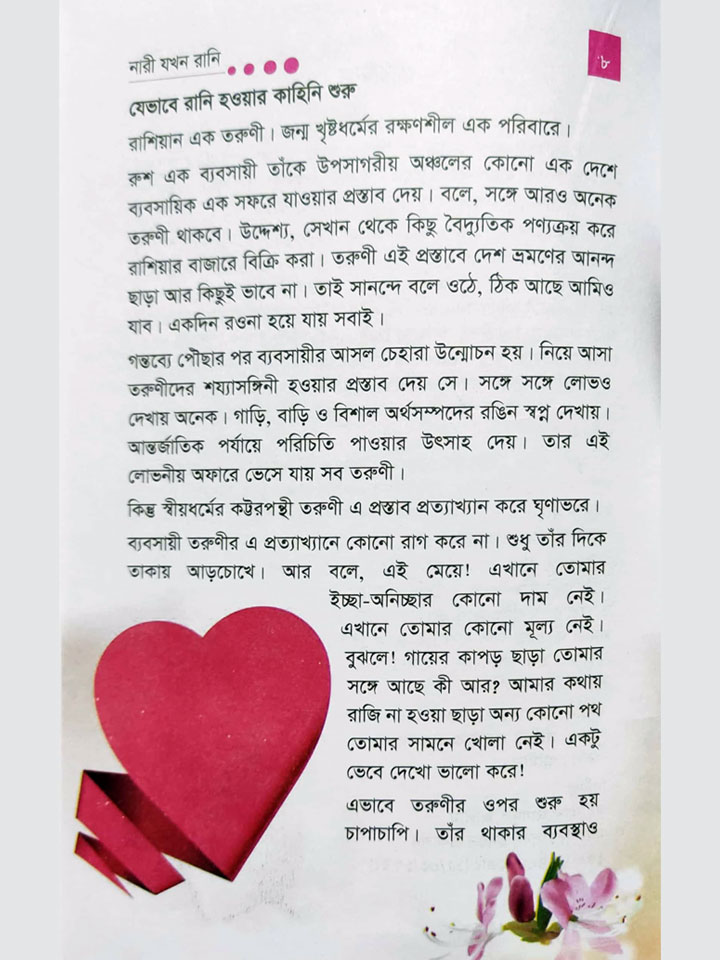 নারী যখন রানি
৮
যেভাবে রানি হওয়ার কাহিনি শুরু
রাশিয়ান এক তরুণী। জন্ম খৃষ্টধর্মের রক্ষণশীল এক পরিবারে।
রুশ এক ব্যবসায়ী তাঁকে উপসাগরীয় অঞ্চলের কোনো এক দেশে
ব্যবসায়িক এক সফরে যাওয়ার প্রস্তাব দেয়। বলে, সঙ্গে আরও অনেক
তরুণী থাকবে। উদ্দেশ্য, সেখান থেকে কিছু বৈদ্যুতিক পণ্যক্রয় করে
রাশিয়ার বাজারে বিক্রি করা। তরুণী এই প্রস্তাবে দেশ ভ্রমণের আনন্দ
ছাড়া আর কিছুই ভাবে না। তাই সানন্দে বলে ওঠে, ঠিক আছে আমিও
যাব। একদিন রওনা হয়ে যায় সবাই।
গন্তব্যে পৌছার পর ব্যবসায়ীর আসল চেহারা উন্মোচন হয়। নিয়ে আসা
তরুণীদের শয্যাসঙ্গিনী হওয়ার প্রস্তাব দেয় সে। সঙ্গে সঙ্গে লোভও
দেখায় অনেক। গাড়ি, বাড়ি ও বিশাল অর্থসম্পদের রঙিন স্বপ্ন দেখায়।
আন্তর্জাতিক পর্যায়ে পরিচিতি পাওয়ার উৎসাহ দেয়। তার এই
লোভনীয় অফারে ভেসে যায় সব তরুণী।
কিন্তু স্বীয়ধর্মের কট্টরপন্থী তরুণী এ প্রস্তাব প্রত্যাখ্যান করে ঘৃণাভরে।
ব্যবসায়ী তরুণীর এ প্রত্যাখ্যানে কোনো রাগ করে না। শুধু তাঁর দিকে
তাকায় আড়চোখে। আর বলে, এই মেয়ে! এখানে তোমার
ইচ্ছা-অনিচ্ছার কোনো দাম নেই।
এখানে তোমার কোনো মূল্য নেই।
বুঝলে! গায়ের কাপড় ছাড়া তোমার
সঙ্গে আছে কী আর? আমার কথায়
রাজি না হওয়া ছাড়া অন্য কোনো পথ
তোমার সামনে খোলা নেই। একটু
ভেবে দেখো ভালো করে!
এভাবে তরুণীর ওপর শুরু হয়
চাপাচাপি। তাঁর থাকার ব্যবস্থাও